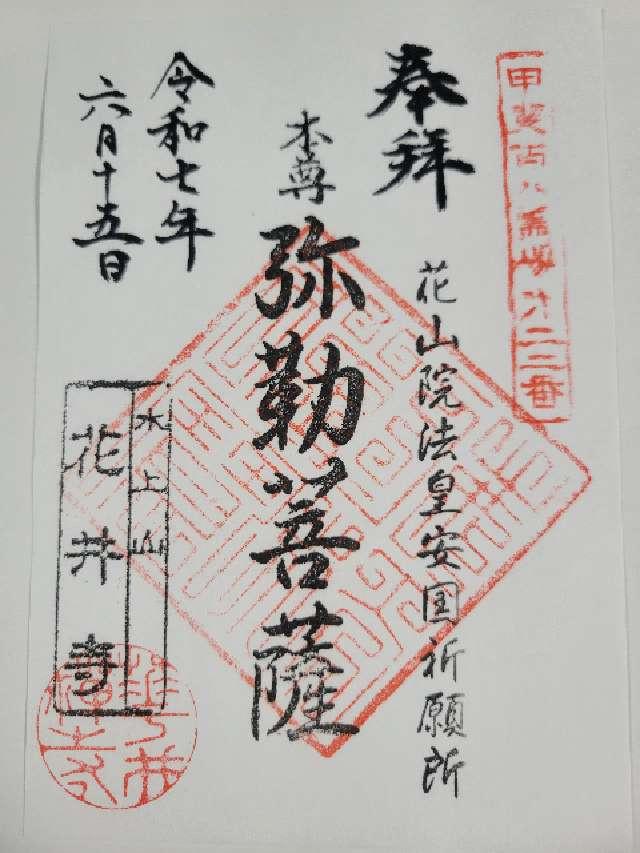 甲斐百八霊場第二三番
奉拝
花山院法皇安国祈願所
本尊
弥勒菩薩
令和七年
六月十五日
水上山
花井寺